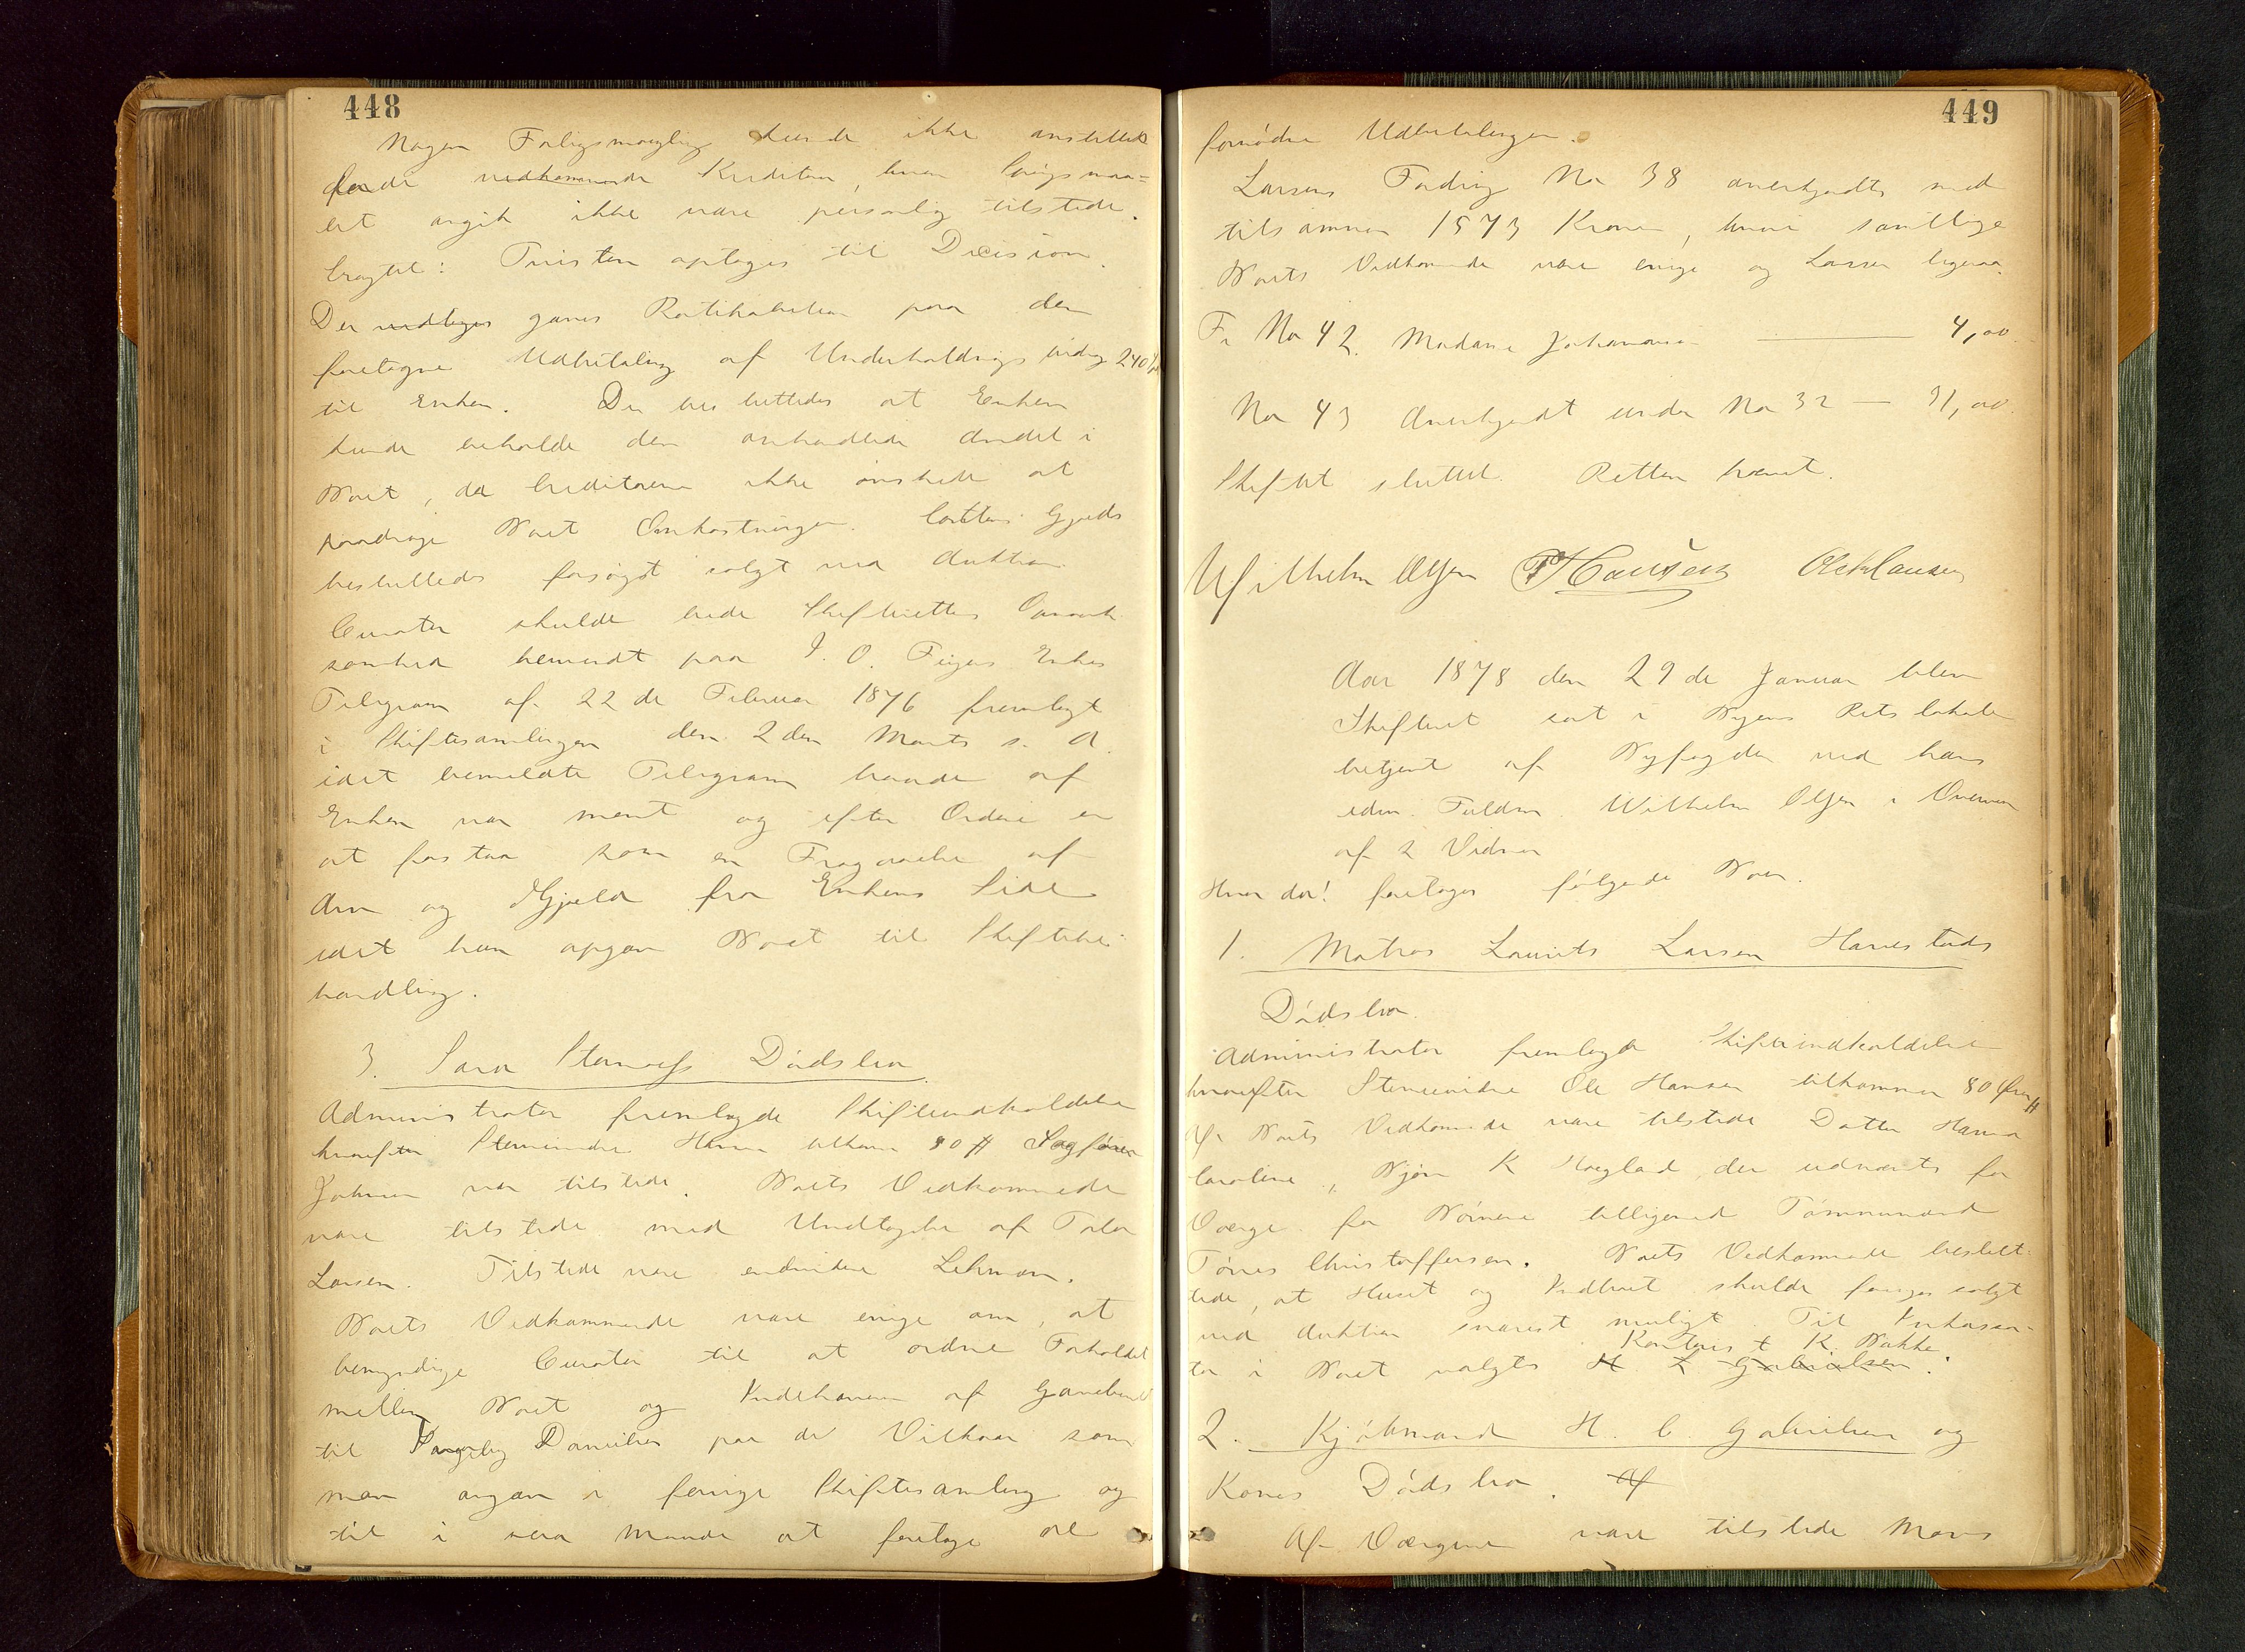 448
Nogen Forligsmægling kunde ikke anstilles
da de vedkommende Kreditorer, hvem Spørgsmaa=
let angik ikke vare personlig tilstede.
bragtes: Tvisten optages til Decision.
Der vedtoges gaves Ratihabition paa den
foretagne Udbetaling af Underholdningsbidrag 240
til Enken. Der besluttedes at Enken
kunde beholde den omhandlede Andel i
Boet, da Creditorerne ikke ønskede at
paadrage Boet Omkostninger.
besluttedes forsøgt solgt ved Auktion.
Curator skulde lede Skifterettens Opmærk
somhed henvendt paa J. O. Enkes
Telegram af 22 de Februar 1876 fremlagt
i Skiftesamlingen den 2 den Marts s. A.
idet bemeldte Telegram baade af
Enken var ment og efter Ordene er
at forstaa som en Fragaaelse af
Arv og Gjæld fra Enkens Side
idet hun opgav Boet til Skiftebe-
handling.
3. Sara Dødsbo.
Administrator fremlagde Skifteindkaldelse
hvorefter Stevnevidne Hansen tilkom 80 Sagfører
Johnsen var tilstede. Boets Vedkommende
vare tilstede med Undtagelse af
Larsen. Tilstede vare endvidere Lehman.
Boets Vedkommende vare enige om, at
bemyndige Curator til at ordne Forholdet
mellem Boet og Indehaveren af Gavebrevet
til Danielsen paa de Vilkaar som
man angav i forrige Skiftesamling og
til i saa Maade at foretage al
449
fornødne Udbetalinger.
Larsens Fordring No 38 anerkjendtes med
tilsammen 1573 Kroner, hvori samtlige
Boets Vedkommende vare enige og Larsen ligesaa.
F. No 42. Madame Johannesen 4,00
No 43 Anerkjendt under No 32 — 31,00.
Skiftet sluttet. Retten hævet.
Wilhelm Olsen PHansen OleHansen
Aar 1878 den 29 de Januar blev
Skifteret sat i Byens Retslokale
betjent af Byfogden ved hans
edsv. Fuldm. Wilhelm Olsen i Overvær
af 2 Vidner
Hvor da! foretoges følgende Boer.
1. Matros Laurits Larsen Hanestads
Dødsbo.
Administrator fremlagde Skifteindkaldelse
hvorefter Stevnevidne Ole Hansen tilkommer 80 Øre
Af Boets Vedkommende vare tilstede Datter Hanna
Caroline, Bjørn K Hægland, der udnævntes for
Værge for Børnene tilligemed Tømmermand
Tønes Christoffersen. Boets Vedkommende beslut-
tede, at Huset og Indboet skulde søges solgt
ved Auktion snarest muligt. Til Inkassa-
Kontorist K. Bakke
tor i Boet valgtes H. L. Gabrielsen.
2. Kjøbmand H. C. Gabrielsen og
Kones Dødsbo. Af
Af Værgerne vare tilstede Mons